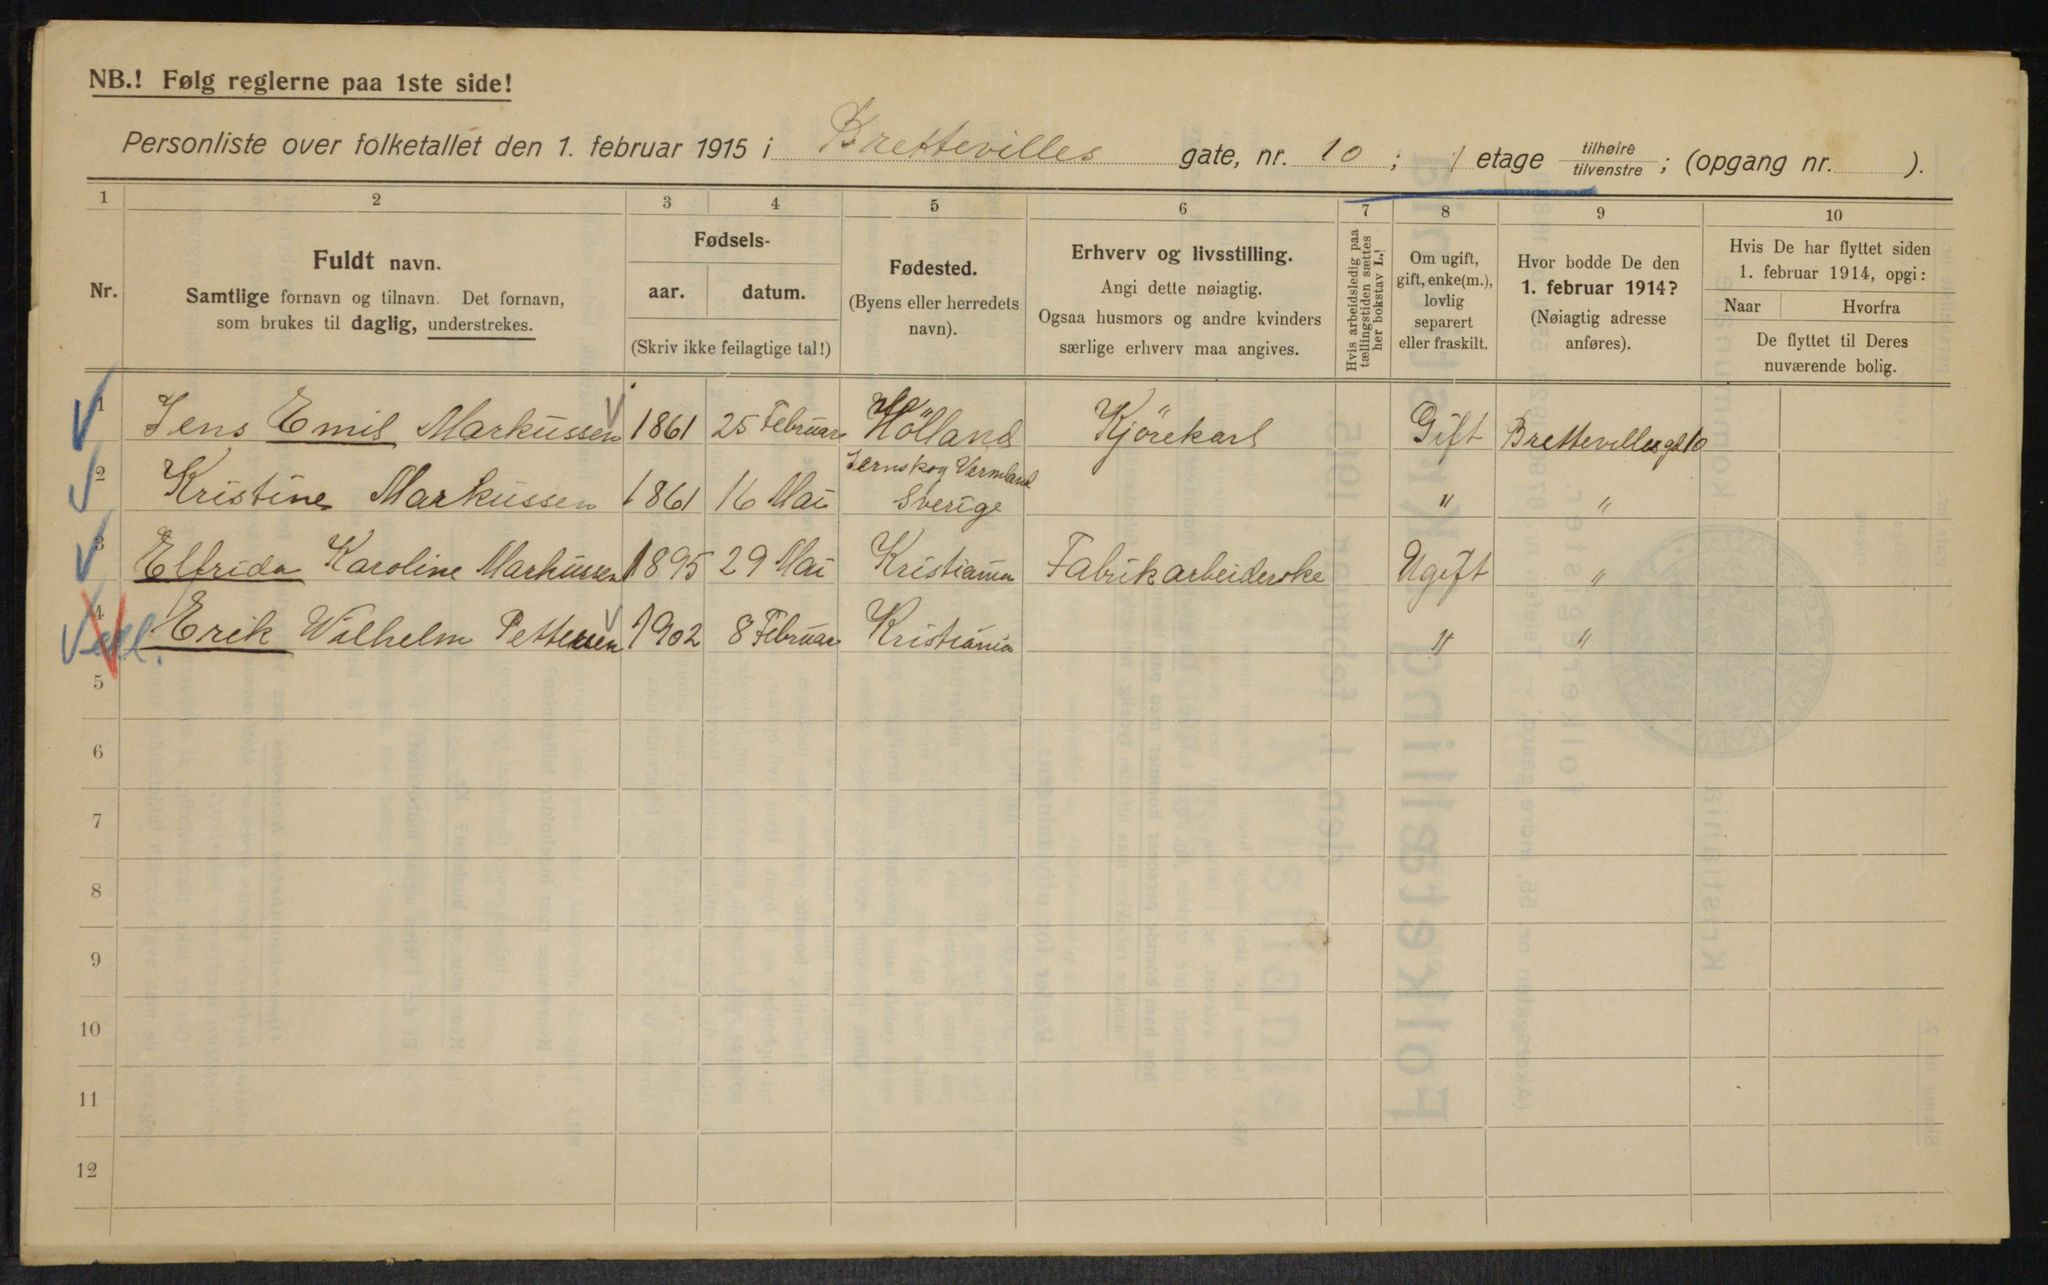 NB.! Følg reglerne paa 1ste side!
Personliste over folketallet den 1. februar 1915 i Brettevilles gate, nr. 10 ; 1 etage tilhøire/tilvenstre ; (opgang nr. ).
1 2 3 4 5 6 7 8 9 10
Nr.
Fuldt navn.
Samtlige fornavn og tilnavn. Det fornavn,
som brukes til daglig, understrekes.
Fødsels-
aar. datum.
(Skriv ikke feilagtige tal!)
Fødested.
(Byens eller herredets
navn).
Erhverv og livsstilling.
Angi dette nøiagtig.
Ogsaa husmors og andre kvinders
særlige erhverv maa angives.
Hvis arbeidsledig paa
tællingstiden sættes
her bokstav L.!
Om ugift,
gift, enke(m.),
lovlig
separert
eller fraskilt.
Hvor bodde De den
1. februar 1914?
(Nøiagtig adresse
anføres).
Hvis De har flyttet siden
1. februar 1914, opgi:
Naar Hvorfra
De flyttet til Deres
nuværende bolig.
1 Jens Emil Markussen 1861 25 Februar Hölland Kjörekarl Gift Brettevillesgt 10
2 Kristine Markussen 1861 16 Mai Jernskog Vermland Sverige " "
3 Elfrida Karoline Markussen 1895 29 Mai Kristiania Fabrikarbeiderske Ugift "
4 Erik Wilhelm Pettersen 1902 8 Februar Kristiania " "
5
6
7
8
9
10
11
12